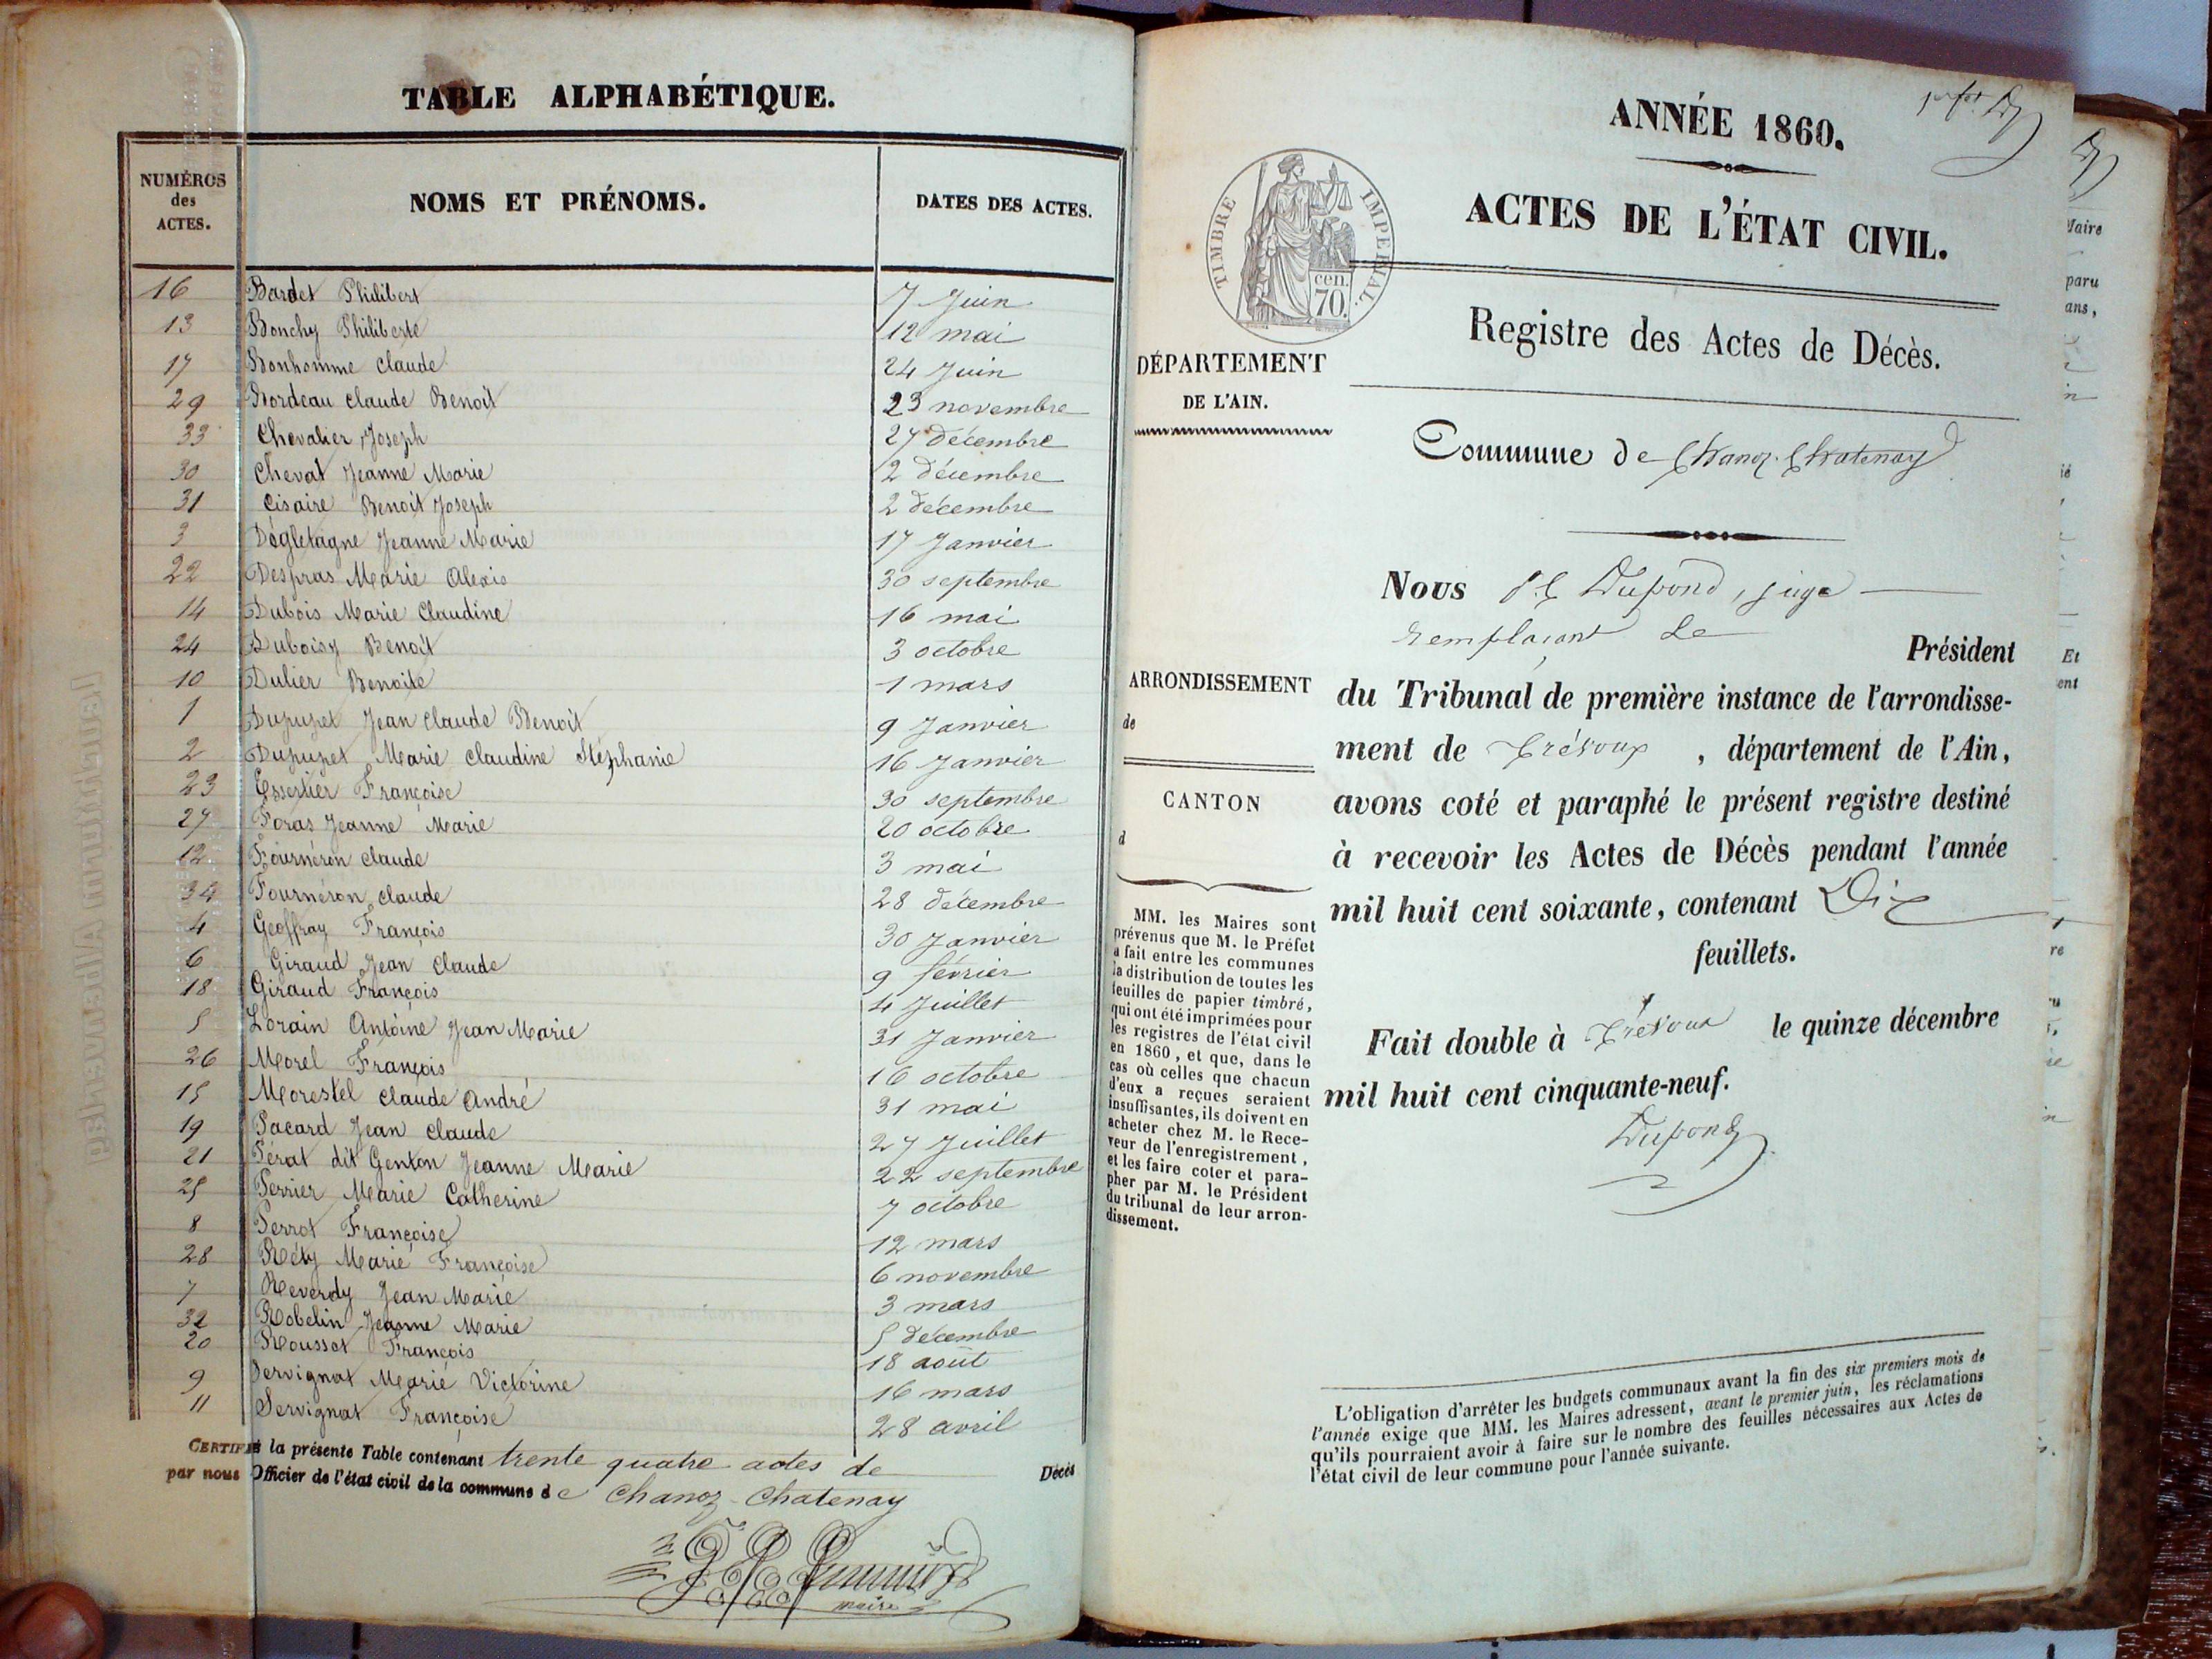 TABLE ALPHABÉTIQUE.
NUMÉROS des ACTES.
NOMS ET PRÉNOMS.
DATES DES ACTES.
16 Bardet Philibert 7 Juin
13 Bonchy Philiberte 12 mai
17 Bonhomme Claude 24 Juin
29 Bordeau Claude Benoit 23 novembre
33 Chevalier Joseph 27 décembre
30 Chevat Jeanne Marie 2 décembre
31 Cisaire Benoit Joseph 2 décembre
3 Dégletagne Jeanne Marie 17 Janvier
22 Despras Marie Alexis 30 septembre
14 Dubois Marie Claudine 16 mai
24 Duboisy Benoit 3 octobre
10 Dulier Benoite 1 mars
1 Dupupet Jean Claude Benoit 9 Janvier
2 Dupupet Marie Claudine Stéphanie 16 Janvier
23 Essertier Françoise 30 septembre
27 Foras Jeanne Marie 20 octobre
12 Fournéron Claude 3 mai
34 Fournéron Claude 28 décembre
4 Geoffray François 30 Janvier
6 Giraud Jean Claude 9 février
18 Giraud François 4 Juillet
5 Lorain Antoine Jean Marie 31 Janvier
26 Morel François 16 octobre
15 Morestel Claude André 31 mai
19 Pacard Jean Claude 27 Juillet
21 Pérat dit Genton Jeanne Marie 22 septembre
25 Perrier Marie Catherine 7 octobre
8 Perrot Françoise 12 mars
28 Réty Marie Françoise 6 novembre
7 Reverdy Jean Marie 3 mars
32 Robelin Jeanne Marie 5 décembre
20 Rousset François 18 août
9 Servignat Marie Victorine 16 mars
11 Servignat Françoise 28 avril
CERTIFIÉ la présente Table contenant trente quatre actes de Décès
par nous Officier de l'état civil de la commune de Chanoz-Chatenay
maire
ANNÉE 1860.
ACTES DE L'ÉTAT CIVIL.
TIMBRE IMPERIAL.
cen.
70.
Registre des Actes de Décès.
DÉPARTEMENT
DE L'AIN.
Commune de Chanoz-Chatenay
Nous Dupond, juge
remplaçant le
Président
du Tribunal de première instance de l'arrondisse-
ment de Trévoux, département de l'Ain,
avons coté et paraphé le présent registre destiné
à recevoir les Actes de Décès pendant l'année
mil huit cent soixante, contenant Dix
feuillets.
Fait double à Trévoux le quinze décembre
mil huit cent cinquante-neuf.
Dupond
ARRONDISSEMENT
de
CANTON
d
MM. les Maires sont
prévenus que M. le Préfet
a fait entre les communes
la distribution de toutes les
feuilles de papier timbré,
qui ont été imprimées pour
les registres de l'état civil
en 1860, et que, dans le
cas où celles que chacun
d'eux a reçues seraient
insuffisantes, ils doivent en
acheter chez M. le Rece-
veur de l'enregistrement,
et les faire coter et para-
pher par M. le Président
du tribunal de leur arron-
dissement.
L'obligation d'arrêter les budgets communaux avant la fin des six premiers mois de
l'année exige que MM. les Maires adressent, avant le premier juin, les réclamations
qu'ils pourraient avoir à faire sur le nombre des feuilles nécessaires aux Actes de
l'état civil de leur commune pour l'année suivante.